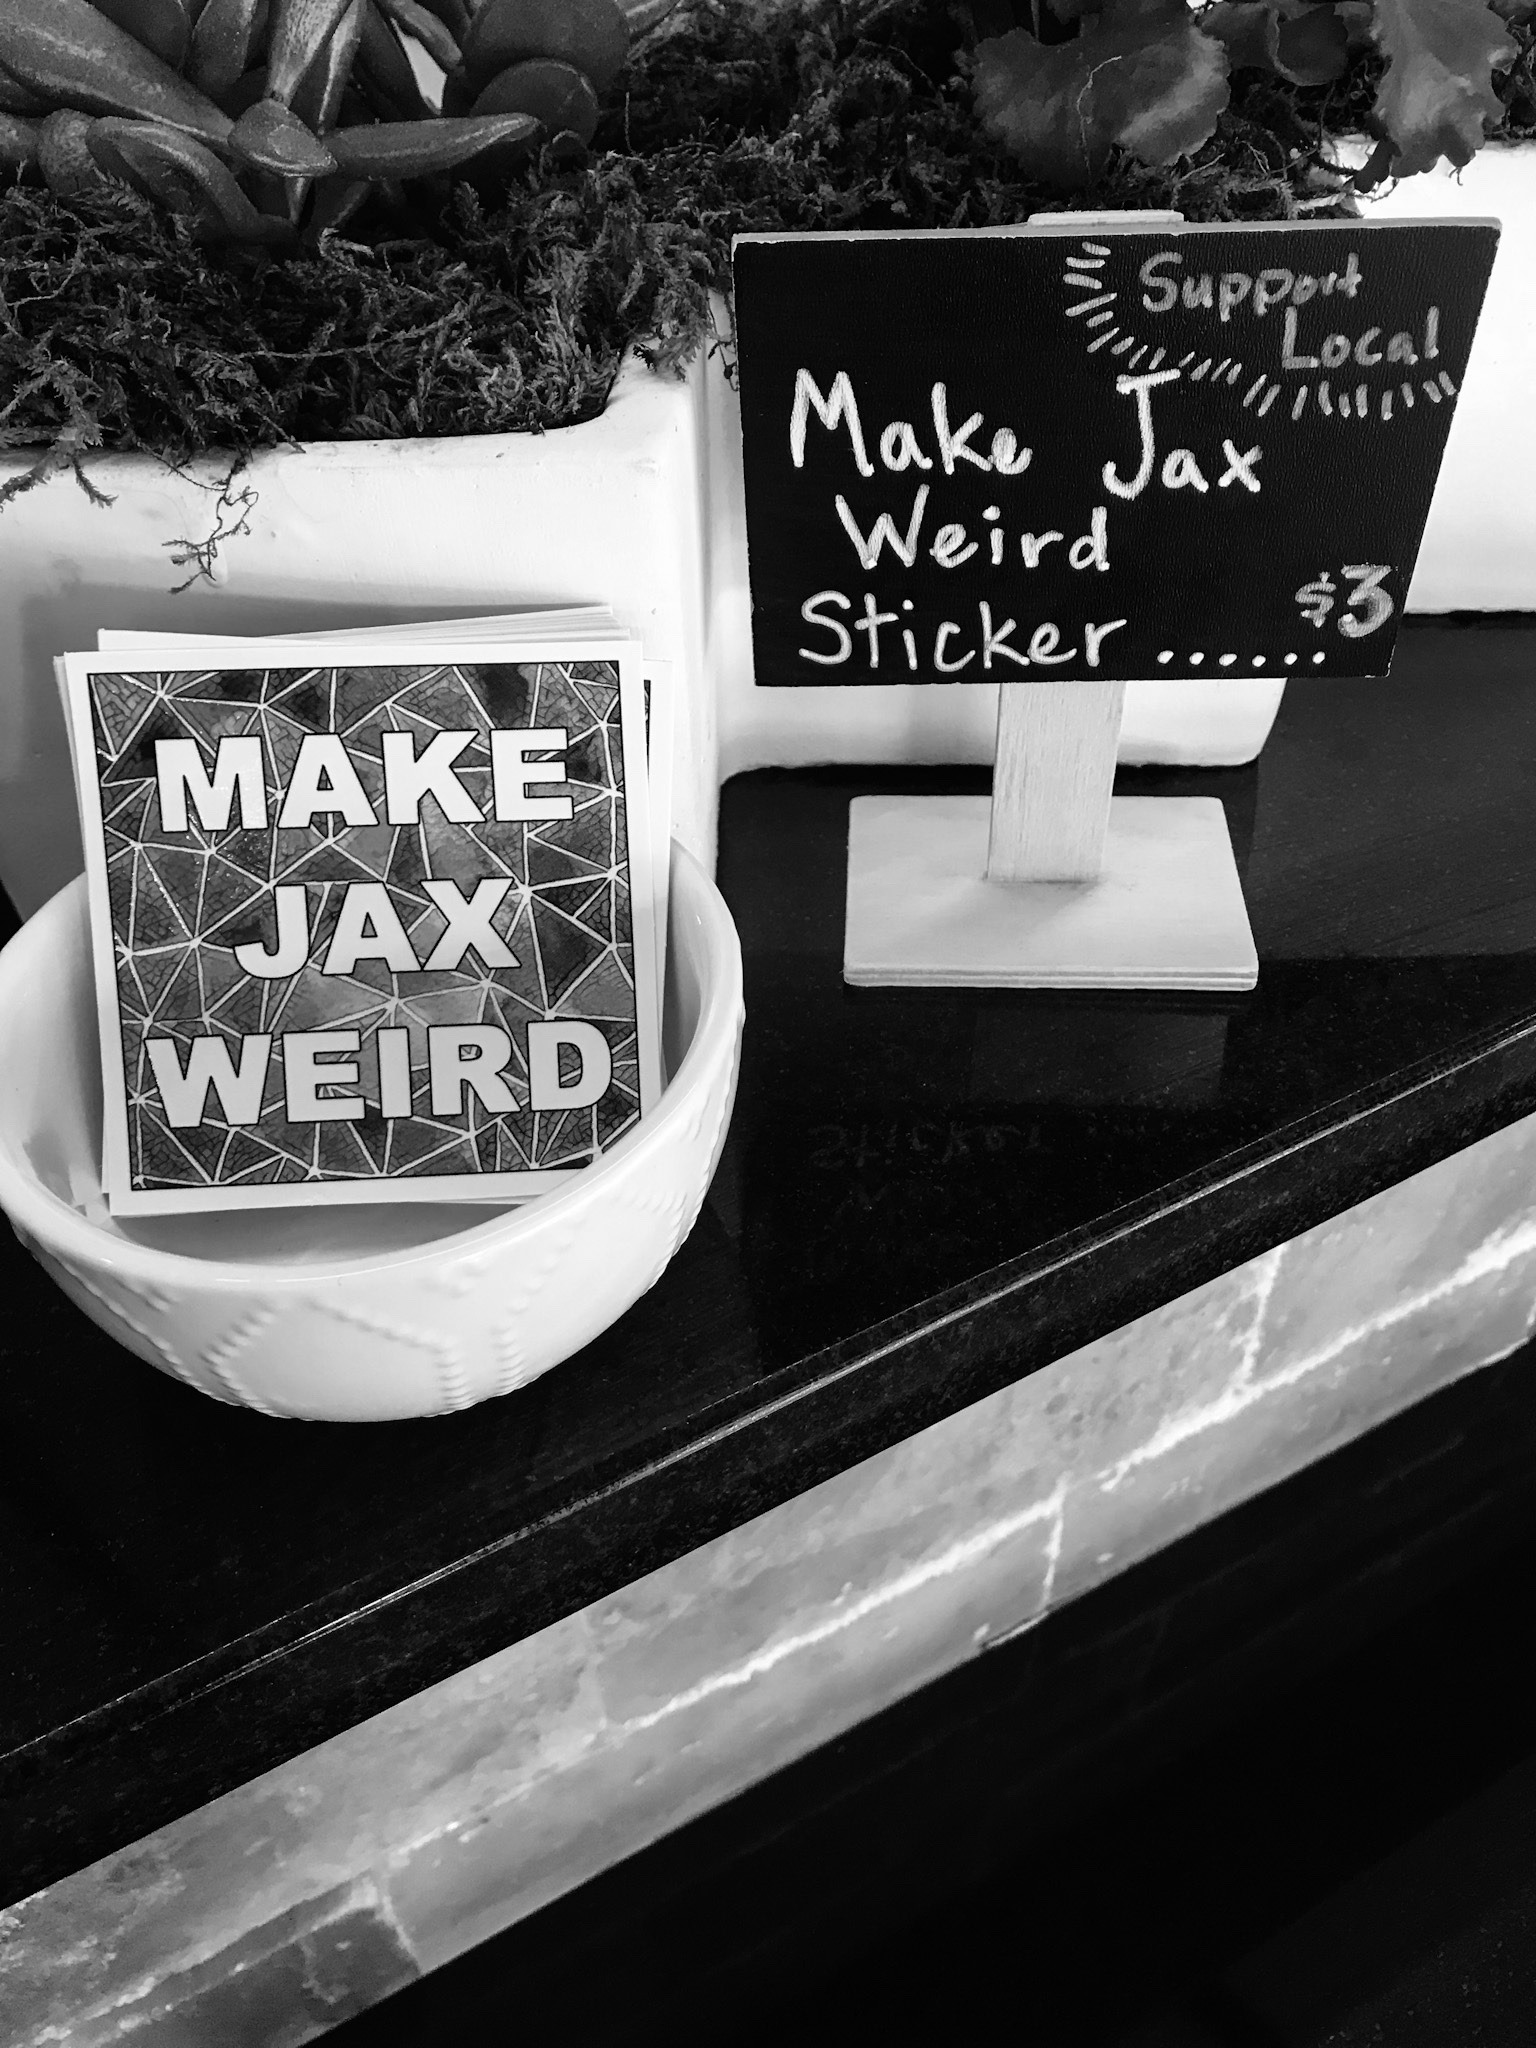 Support
Local
Make Jax
Weird
Sticker ...... $3
MAKE
JAX
WEIRD